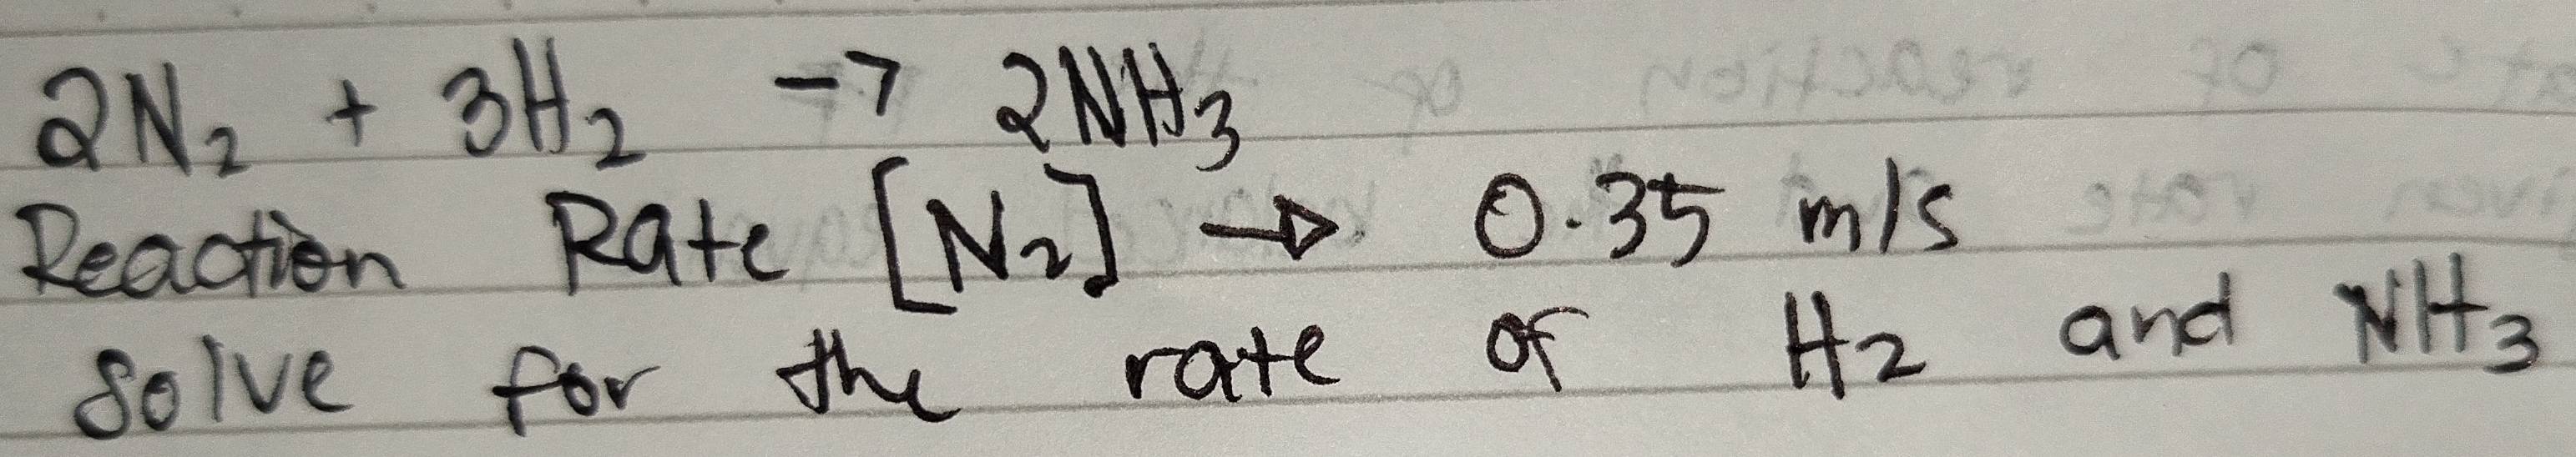 2N₂ + 3H₂ → 2NH₃
Reaction Rate [N₂] → 0.35 m/s
Solve for the rate of H₂ and NH₃